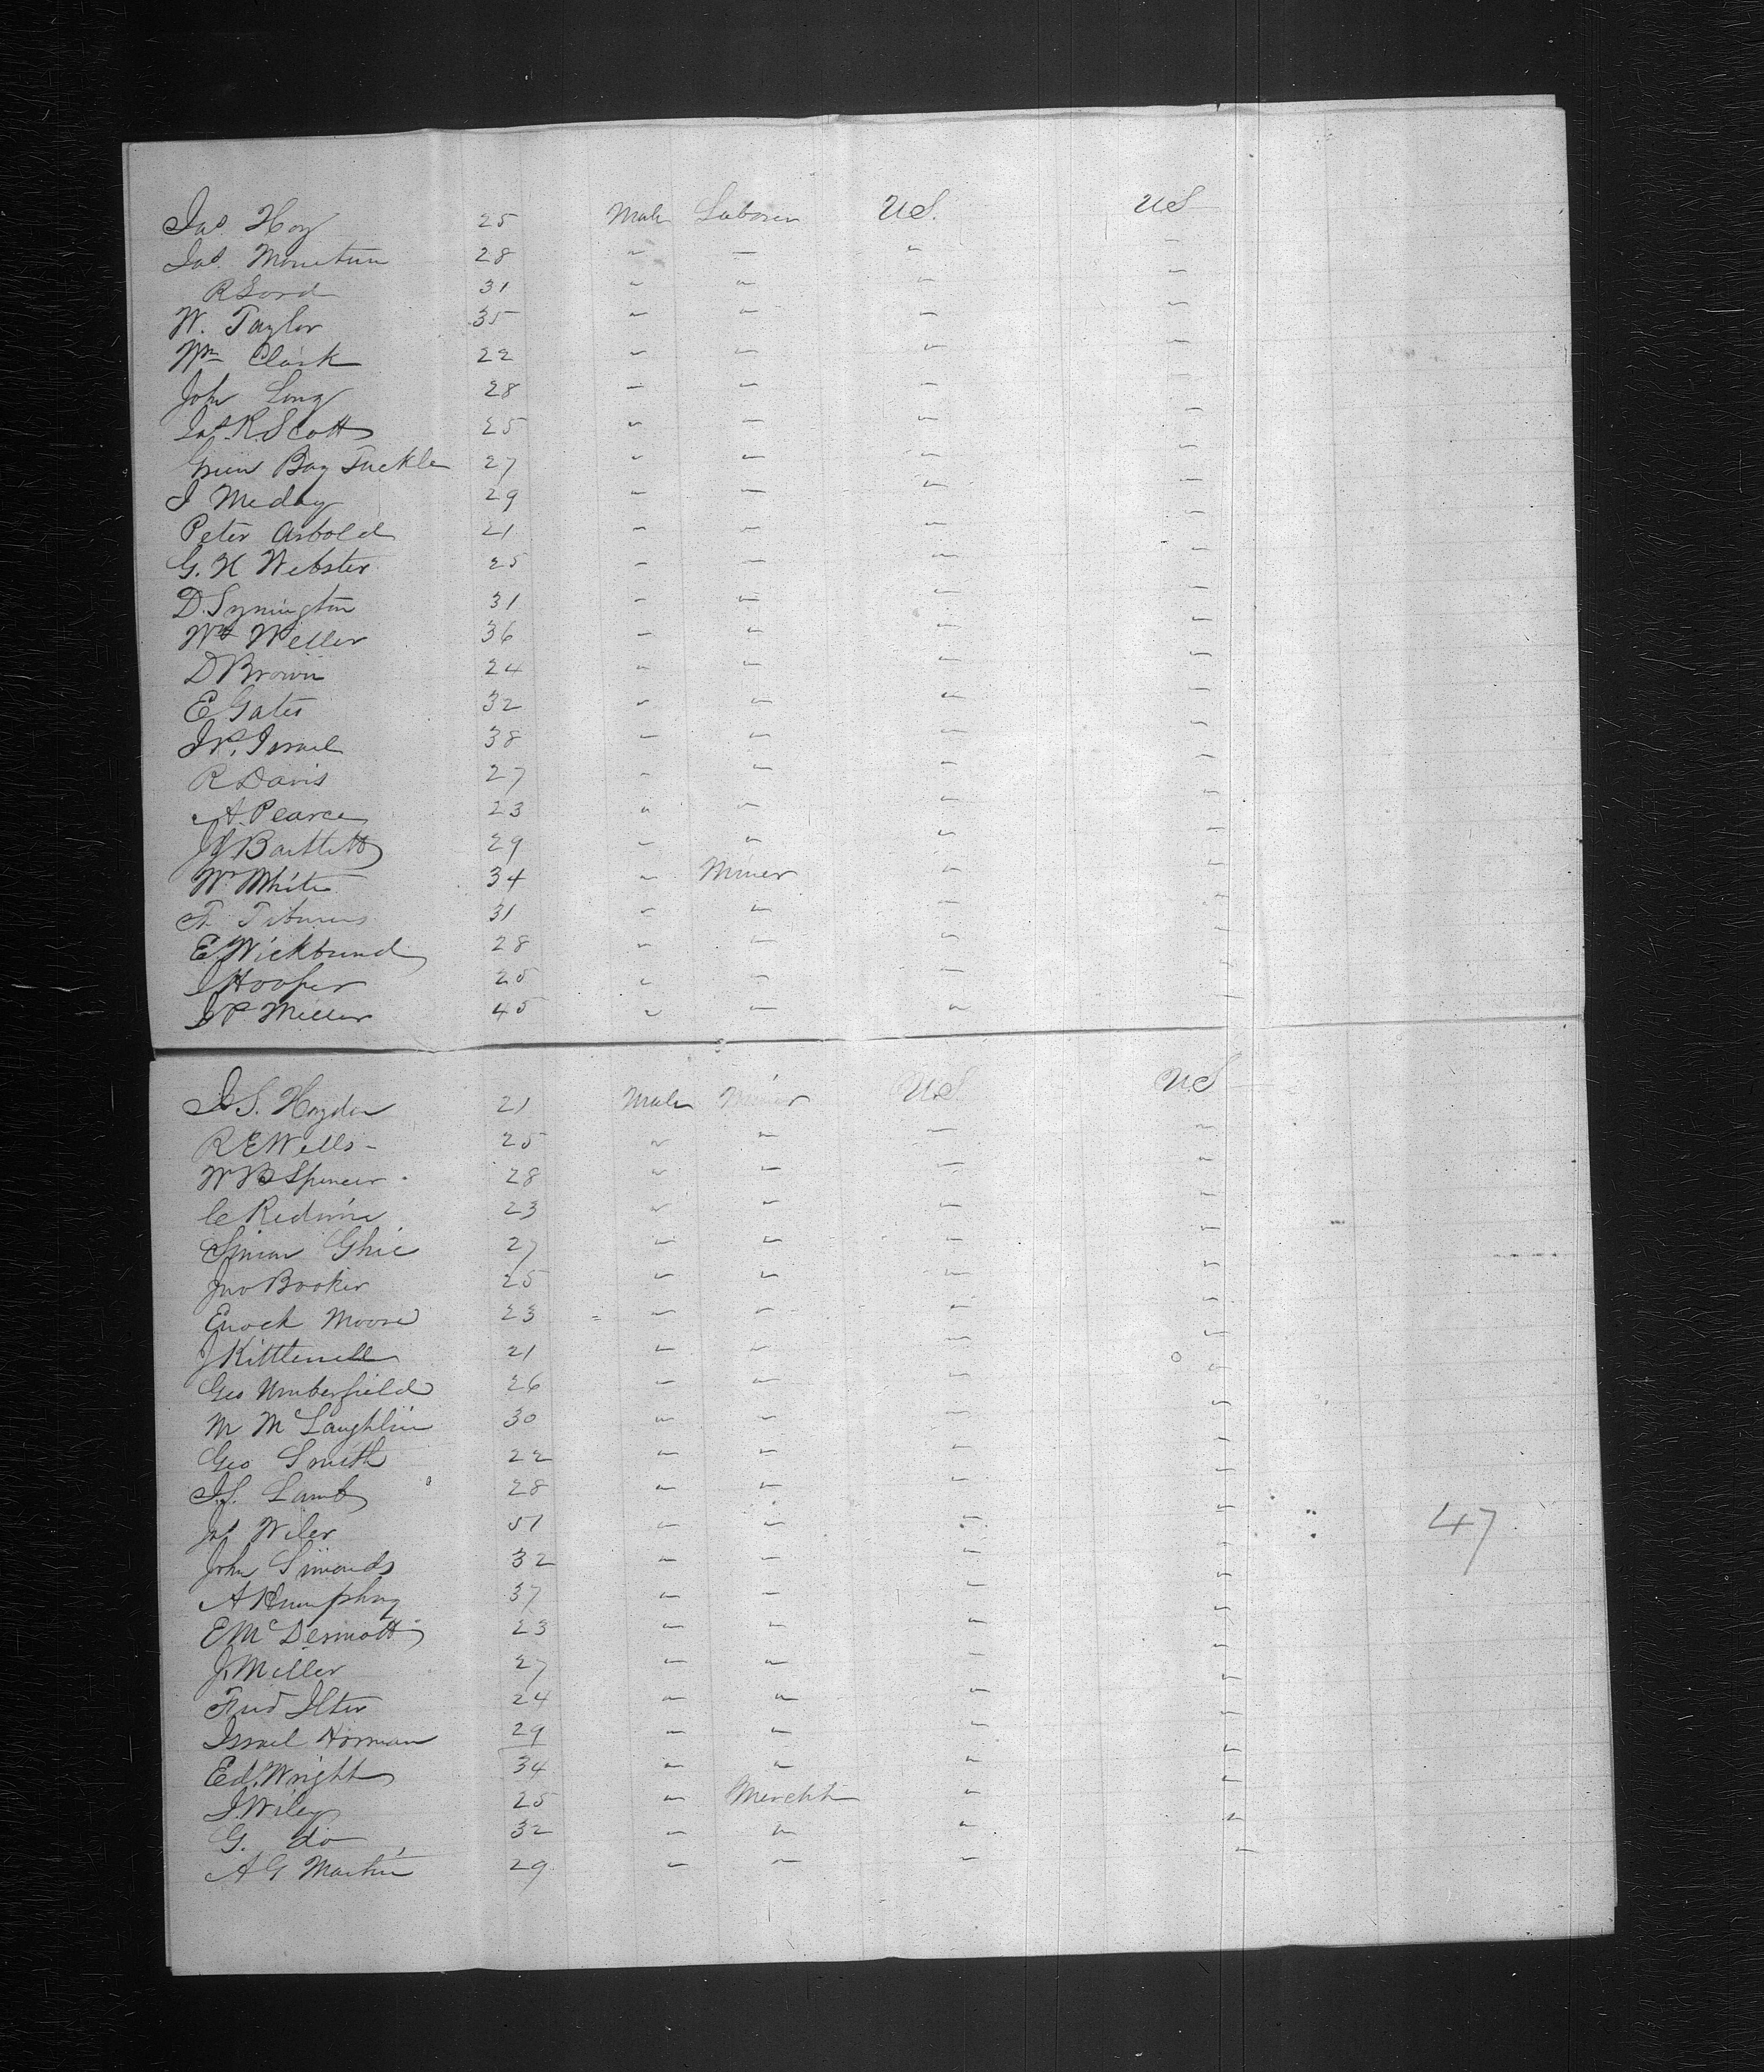 Jas. Hoy 25 Male Laborer U.S. U.S
Jas. 28 " — " —
R Lord 31 " " " —
W. Taylor 35 " " — —
Wm Clark 22 " — " —
John Long 28 — " — —
Jas. R. Scott 25 " — " —
Green Bay Tuckler 27 " — — —
J Meday 29 " — — —
Peter Asbold 21 " — — —
G. H Webster 25 — — — —
D. Symington 31 — " — —
Wm Weller 36 — " — —
D Brown 24 " — — —
E Gates 32 " — — —
Israel 38 — — — —
R Davis 27 — — — —
A. Pearce 23 " — — —
Bartlett 29 — " " —
Wm White 34 " Miner " —
F. 31 " — — —
E. Wickbund 28 " — — —
J Hooper 25 " — — —
J P Miller 45 " — "
J. S. Haydon 21 Male Miner U.S. U.S
R E Wells 25 " " — "
W B Spencer 28 " — — "
C Redwine 23 " " — —
Simon Ghie 27 " " — —
Jno Booker 25 — " — —
Enoch Moore 23 — — " —
J Kittlewell 21 — " — —
Geo Umberfield 26 — — — —
M McLaughlin 30 " — — —
Geo Smith 22 " " — —
J. S. Lamb 28 — — — —
Jas Wiler 51 — — — —
John Simonds 32 — — — —
A Humphrey 37 — — — —
E McDermott 23 — — " —
J. Miller 27 — " — —
Fred Ilter 24 " " " —
Israel Norman 29 — " — —
Ed. Wright 34 " " " —
J. Wiley 25 " Mercht " "
G. do 32 — " " "
A G Machin 29 — — — —
47